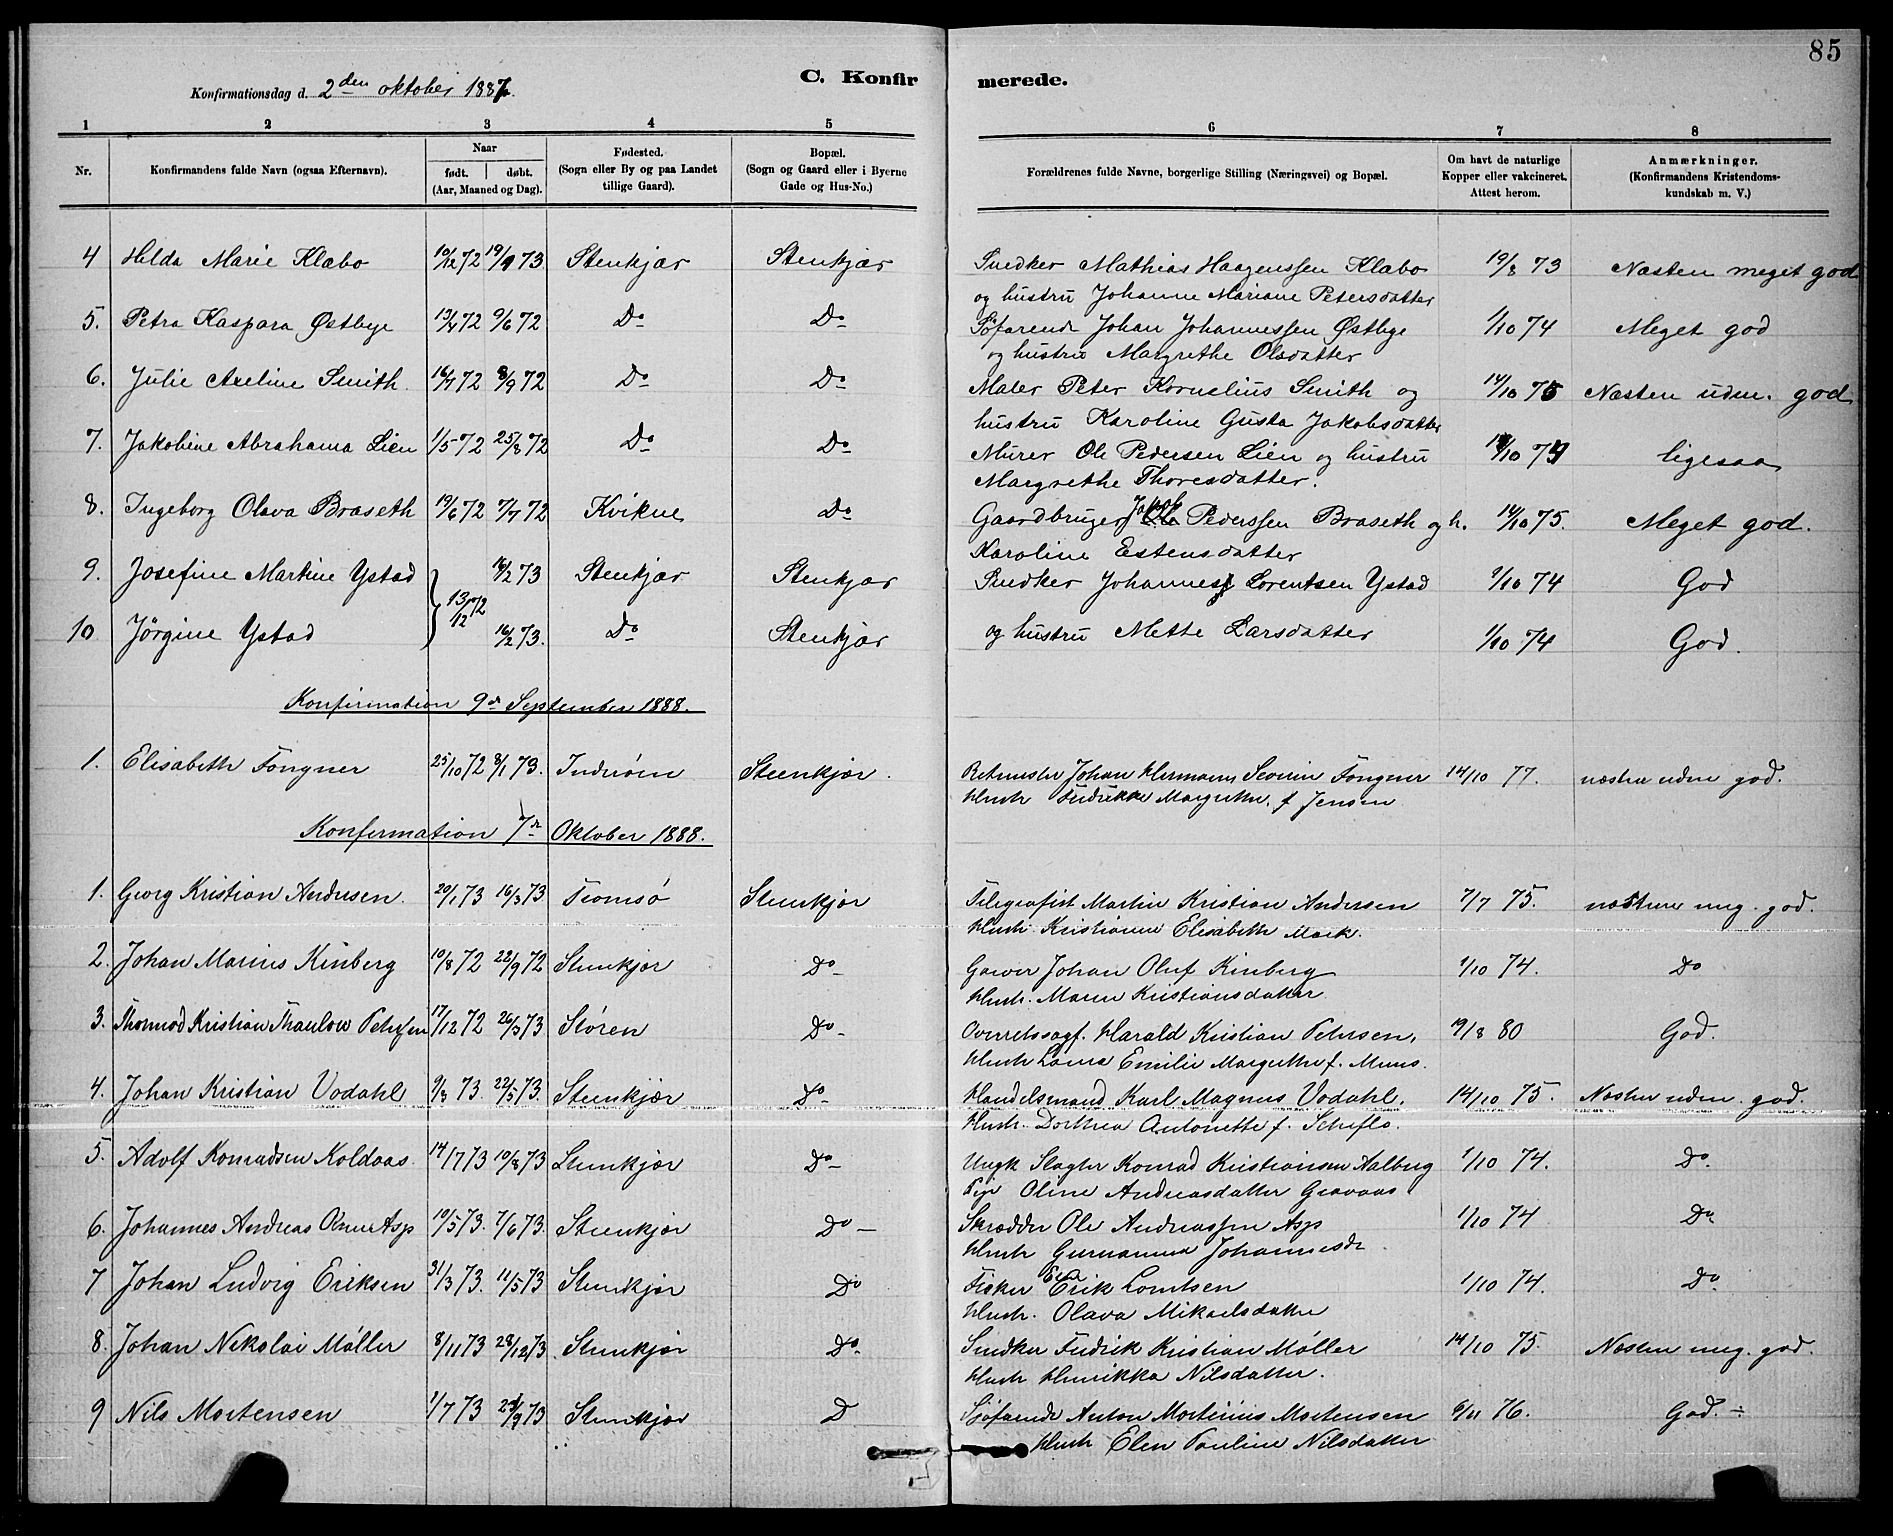 85
C. Konfirmerede.
Konfirmationsdag d. 2den oktober 1887.
1 2 3 4 5 6 7 8
Nr. Konfirmandens fulde Navn (ogsaa Efternavn). Naar født. døbt. (Aar, Maaned og Dag). Fødested. (Sogn eller By og paa Landet tillige Gaard). Bopæl. (Sogn og Gaard eller i Byerne Gade og Hus-No.) Forældrenes fulde Navne, borgerlige Stilling (Næringsvei) og Bopæl. Om havt de naturlige Kopper eller vakcineret. Attest herom. Anmærkninger. (Konfirmandens Kristendomskundskab m. V.)
4 Hilda Marie Klæbo 10/12 72 19/9 73 Stenkjær Stenkjær Snedker Mathias Haagenssen Klæbo 19/8 73 Næsten meget god
og hustru Johanne Mariane Petersdatter
5. Petra Kaspara Østbye 13/4 72 9/6 72 Do Do Søfarende Johan Johannessen Østbye 1/10 74 Meget god
og hustru Margrethe Olsdatter
6. Julie Axeline Smith 16/7 72 8/9 72 Do Do Maler Peter Kornelius Smith og 14/10 75 Næsten udm. god
hustru Karoline Gusta Jakobsdatter
7. Jakobine Abrahama Lien 1/5 72 25/8 72 Do Do Murer Ole Pedersen Lien og hustru 1/10 74 ligesaa
Margrethe Thoresdatter.
8. Ingeborg Olava Braseth 19/6 72 7/7 72 Kvikne Do Gaardbruger Jakob Pederssen Braseth og h. 14/10 75. Meget god.
Karoline Estensdatter
9. Josefine Martine Ystad 13/12 72 16/2 73 Stenkjær Stenkjær Snedker Johannes Lorentsen Ystad 1/10 74 God
10 Jørgine Ystad 16/2 73. Do Stenkjær og hustru Mette Larsdatter 1/10 74 God.
Konfirmation 9de September 1888.
1. Elisabeth Fongner 25/10 72 8/1 73. Inderøen Steenkjær. Johan Hermann Severin Fongner 14/10 77. næsten udm god.
Hustr Fredrikke Margrethe f Jensen
Konfirmation 7de Oktober 1888.
1. Georg Kristian Andresen. 20/1 73 16/3 73 Tromsø Steenkjær Telegrafist Martin Kristian Andersen 7/7 75. næsten meg. god.
Hustr. Kristianna Elisabeth Mack.
2. Johan Marius Kinberg 10/8 72 22/9 72 Stenkjær Do Garver Johan Oluf Kinberg 1/10 74. Do
Hustr. Maren Kristiansdatter
3. Thormod Kristian Thaulow Petersen 17/12 72 26/3 73 Støren Do Overretssagf. Harald Kristian Petersen, 19/8 80 God.
Hustr Laura Emilie Margrethe f.
4. Johan Kristian Vodahl 9/3 73. 22/5 73. Steenkjær Do Handelsmand Karl Magnus Vodahl. 14/10 75. Næsten udm. god.
Hustr. Dorthea Antonette f. Scheflo.
5. Adolf Konradsen Koldaas 14/7 73 10/8 73 Steenkjær Do Ungk Slagter Konrad Kristiansen Aalberg 1/10 74. Do.
Pige Oline Andreasdatter Gravaas
6. Johannes Andreas Asp 10/5 73. 7/6 73. Steenkjær Do Skrædder Ole Andreassen Asp 1/10 74 Do
Hustr Gurianna Johannesdr
7 Johan Ludvig Eriksen 31/3 73. 11/5 73 Steenkjær Do Fisker Erik 1/10 74. Do.
Hustr. Olava Mikaelsdatter
8. Johan Nikolai Møller 8/11 73 28/12 73. Steenkjær Do. Snedker Fredrik Kristian Møller 14/10 75. Næsten meg. god.
Hustr Henrikka Nilsdatter.
9 Nils Mortensen 1/7 73 23/9 73 Steenkjær D Sjøfarende Anton Morteinius Mortensen 6/11 76. God. ÷
Hustr Elen Pauline Nilsdatter